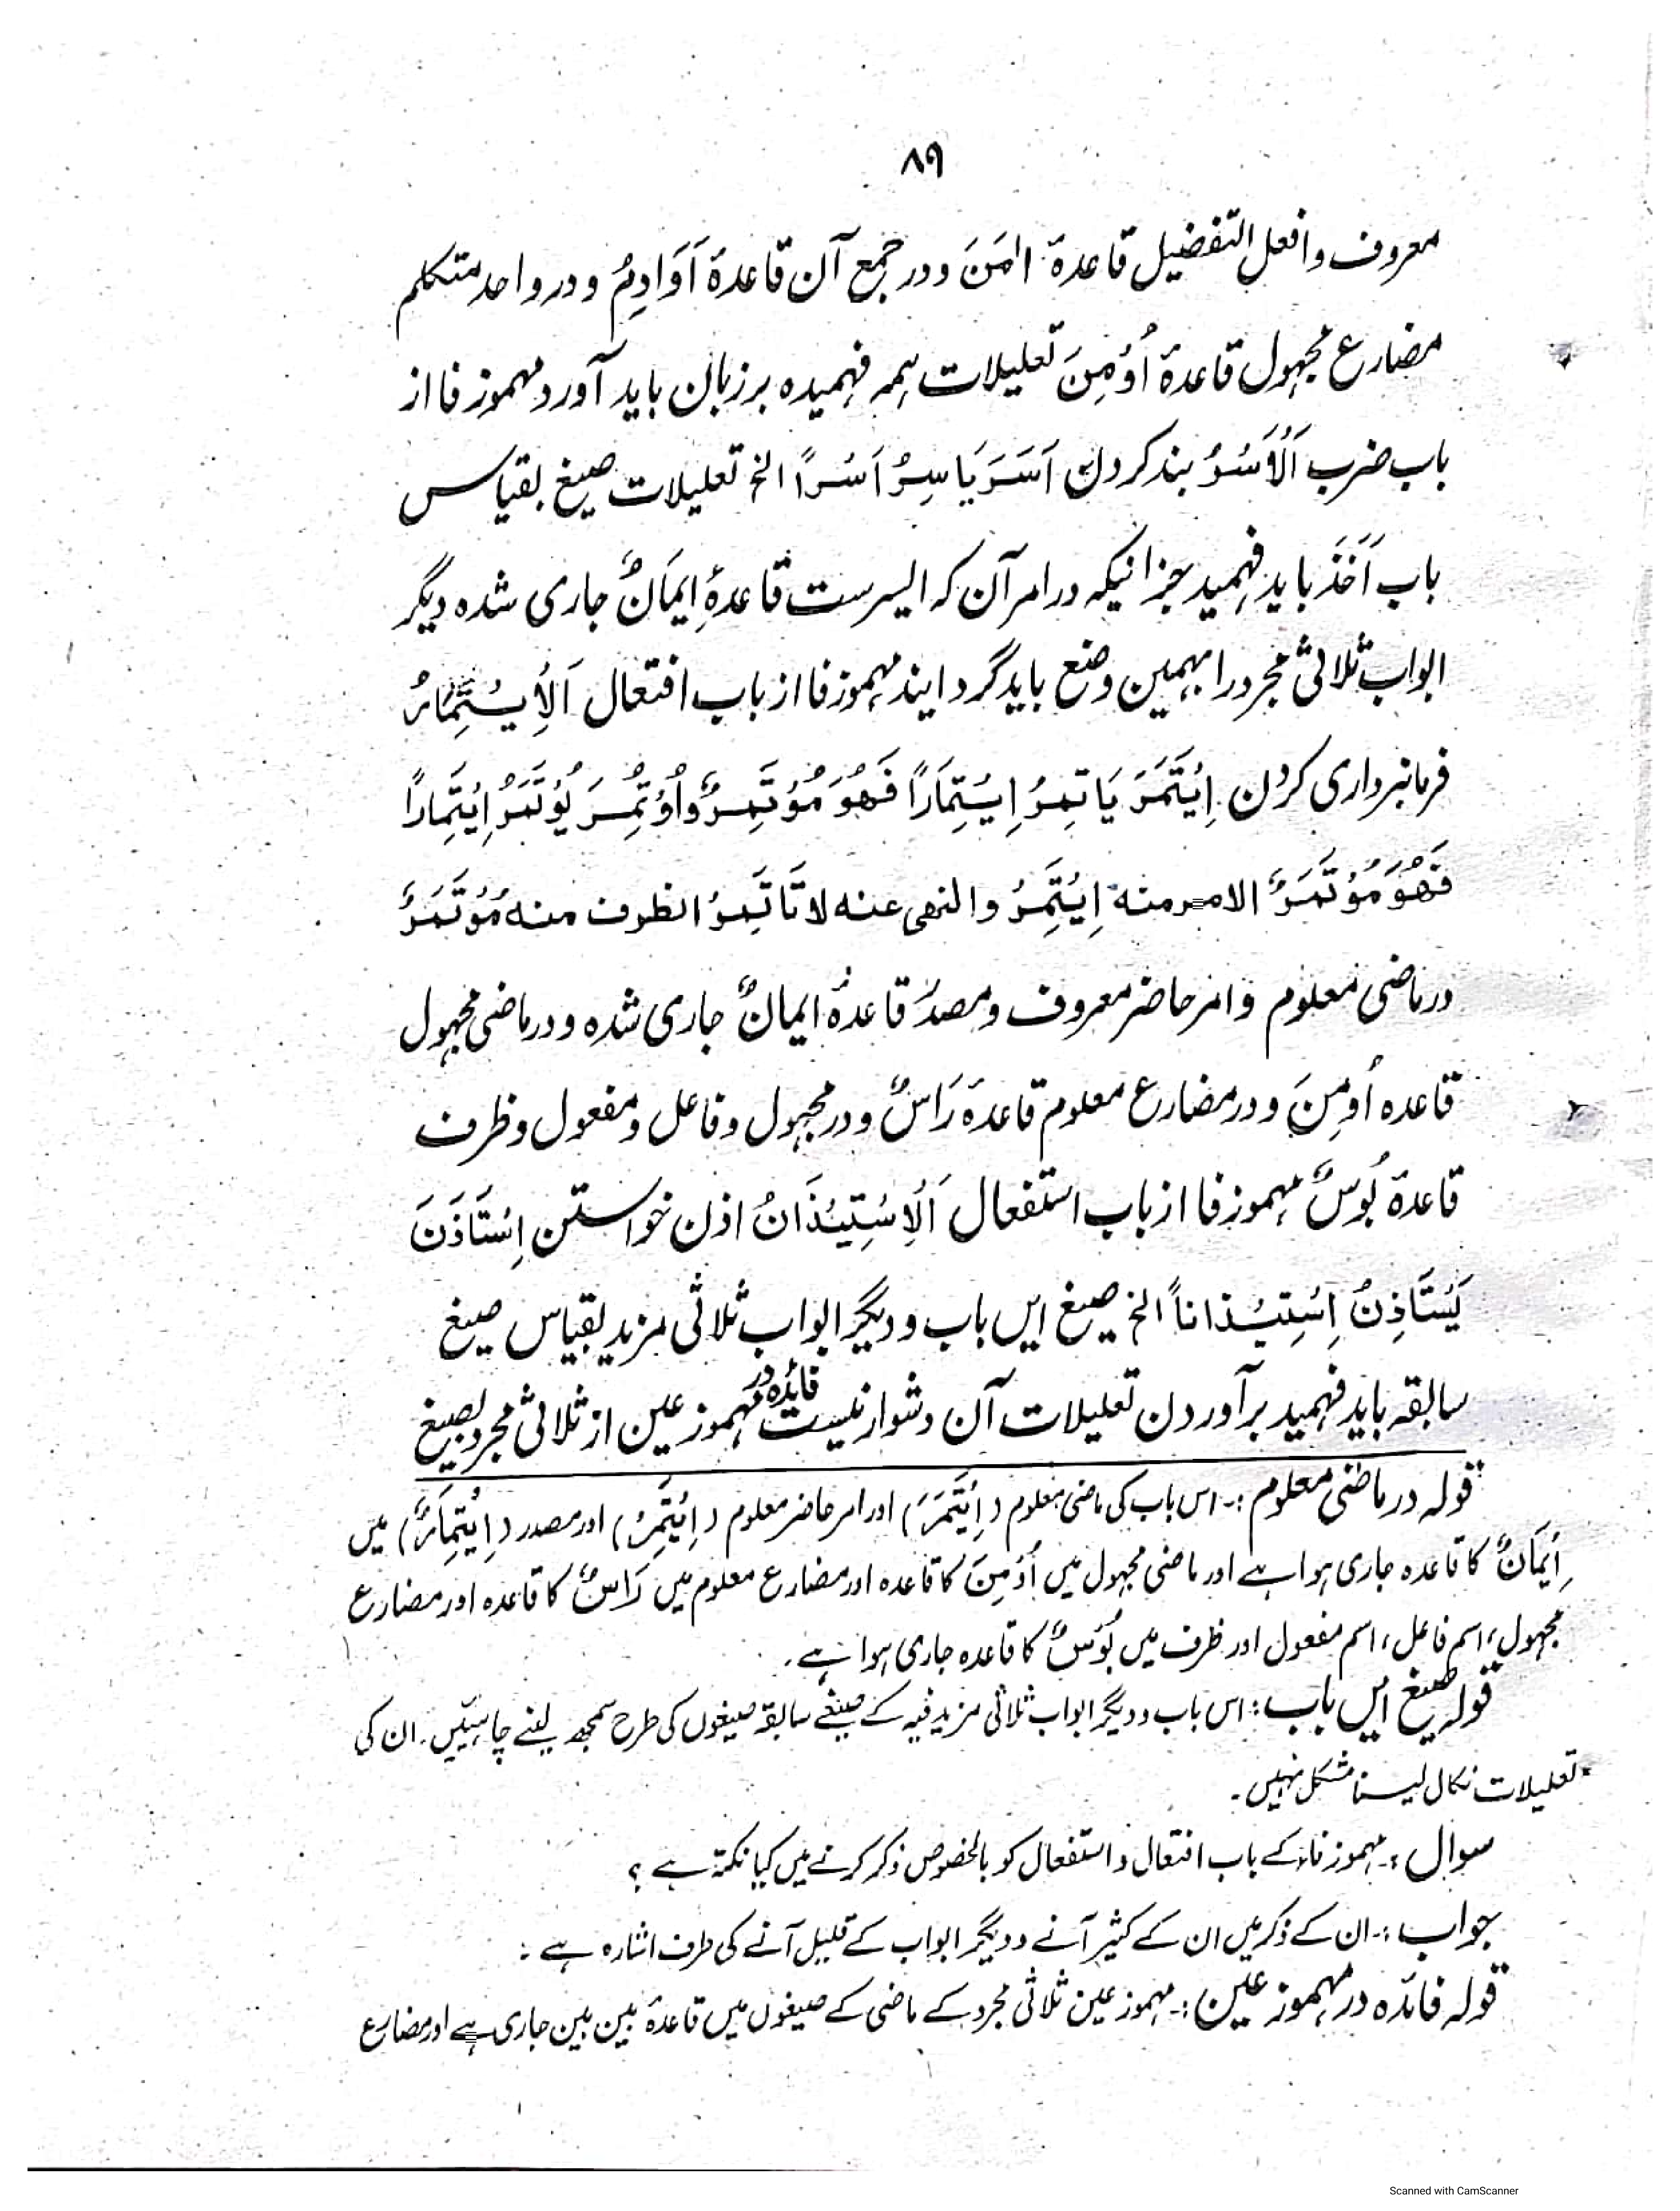 ۸۹
معروف وافعل التفضیل قاعدۂ اٰمَنَ ودر جمع آن قاعدۂ اَوَادِمُ ودر واحد متکلم
مضارع مجہول قاعدۂ اُوْمِنَ تعلیلات ہمہ فہمیدہ بر زبان باید آورد مہموز فا از
باب ضرب اَلْاَسْرُ بند کردن اَسَرَ یَاسِرُ اَسْرًا الخ تعلیلات صیغ بقیاس
باب اَخَذَ باید فہمید جز انیکہ در امر آن کہ ایسرست قاعدۂ اِیمَانٌ جاری شدہ دیگر
ابواب ثلاثی مجرد را بہمین وضع باید گردایند مہموز فا از باب افتعال اَلْاِیْتِمَارُ
فرمانبرداری کردن اِیْتَمَرَ یَاتَمِرُ اِیْتِمَارًا فَهُوَ مُوْتَمِرٌ وَاُوْتُمِرَ یُوْتَمَرُ اِیْتِمَارًا
فَهُوَ مُوْتَمَرٌ الامر منه اِیْتَمِرْ والنهی عنه لا تَاتَمِرْ الظرف منه مُوْتَمَرٌ
در ماضی معلوم وامر حاضر معروف ومصدر قاعدۂ ایمانٌ جاری شدہ ودر ماضی مجہول
قاعدہ اُوْمِنَ ودر مضارع معلوم قاعدۂ رَاسٌ ودر مجہول وفاعل ومفعول وظرف
قاعدۂ بُوْسٌ مہموز فا از باب استفعال اَلْاِسْتِیْذَانُ اذن خواستن اِسْتَاذَنَ
یَسْتَاذِنُ اِسْتِیْذَاناً الخ صیغ ایں باب ودیگر ابواب ثلاثی مزید بقیاس صیغ
سابقہ باید فہمید برآوردن تعلیلات آن دشوار نیست فائدہ در مہموز عین از ثلاثی مجرد بصیغ
قولہ در ماضی معلوم :۔ اس باب کی ماضی معلوم (اِیْتَمَرَ) اور امر حاضر معلوم (اِیْتَمِرْ) اور مصدر (اِیْتِمَارٌ) میں
اِیْمَانٌ کا قاعدہ جاری ہوا ہے اور ماضی مجہول میں اُوْمِنَ کا قاعدہ اور مضارع معلوم میں رَاسٌ کا قاعدہ اور مضارع
مجہول، اسم فاعل، اسم مفعول اور ظرف میں بُوْسٌ کا قاعدہ جاری ہوا ہے۔
قولہ صیغ ایں باب: اس باب ودیگر ابواب ثلاثی مزید فیہ کے صیغے سابقہ صیغوں کی طرح سمجھ لینے چاہییں۔ ان کی
تعلیلات نکال لینا مشکل نہیں۔
سوال :۔ مہموز فاء کے باب افتعال و استفعال کو بالخصوص ذکر کرنے میں کیا نکتہ ہے ؟
جواب :۔ ان کے ذکر میں ان کے کثیر آنے و دیگر ابواب کے قلیل آنے کی طرف اشارہ ہے :
قولہ فائدہ در مہموز عین :۔ مہموز عین ثلاثی مجرد کے ماضی کے صیغوں میں قاعدۂ بین بین جاری ہے اور مضارع
Scanned with CamScanner